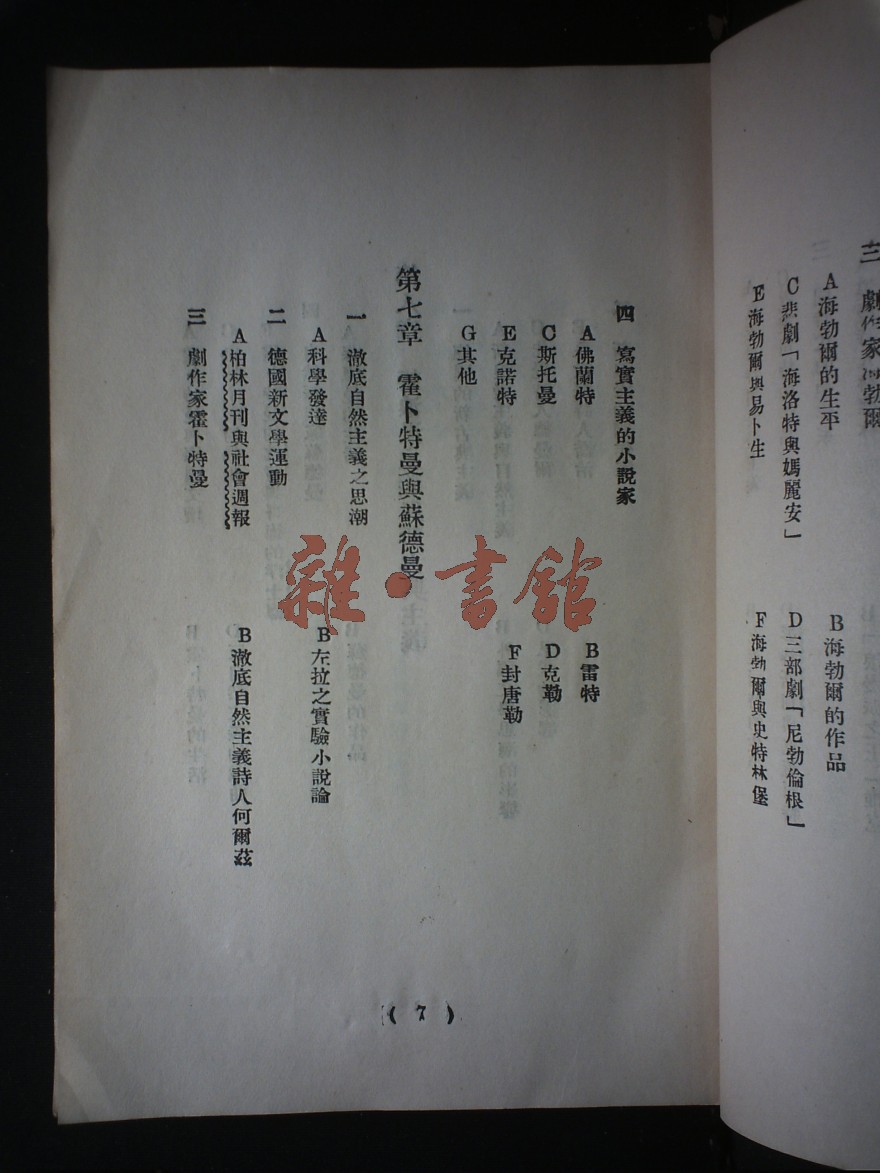 三　劇作家海勃爾
A 海勃爾的生平　B 海勃爾的作品
C 悲劇「海洛特與媽麗安」　D 三部劇「尼勃倫根」
E 海勃爾與易卜生　F 海勃爾與史特林堡
四　寫實主義的小說家
A 佛蘭特　B 雷特
C 斯托曼　D 克勒
E 克諾特　F 封唐勒
G 其他
第七章　霍卜特曼與蘇德曼
一　澈底自然主義之思潮
A 科學發達　B 左拉之實驗小說論
二　德國新文學運動
A 柏林月刊與社會週報　B 澈底自然主義詩人何爾茲
三　劇作家霍卜特曼
( 7 )
雜·書館